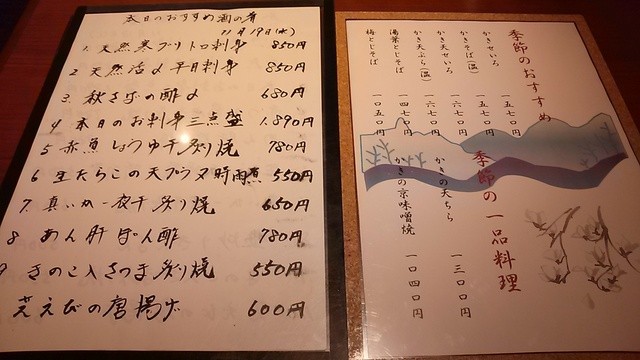 本日のおすすめ酒の肴
11月19日(水)
1. 天然寒ブリトロ刺身 850円
2 天然活〆平目刺身 850円
3. 秋さばの酢〆 680円
4 本日のお刺身三点盛 1.890円
5 赤魚しょうゆ干炙り焼 780円
6 生たらこの天プラ又時雨煮 550円
7. 真いか一夜干炙り焼 650円
8 あん肝ぽん酢 780円
9 きのこ入さつま炙り焼 550円
芝えびの唐揚げ 600円
季節のおすすめ
かきせいろ 一五七〇円
かきそば(温) 一五七〇円
かき天せいろ 一六七〇円
かき天ぷら(温) 一六七〇円
湯葉とじそば 一四七〇円
梅とじそば 一〇五〇円
季節の一品料理
かきの天ぷら 一三〇〇円
かきの京味噌焼 一〇四〇円